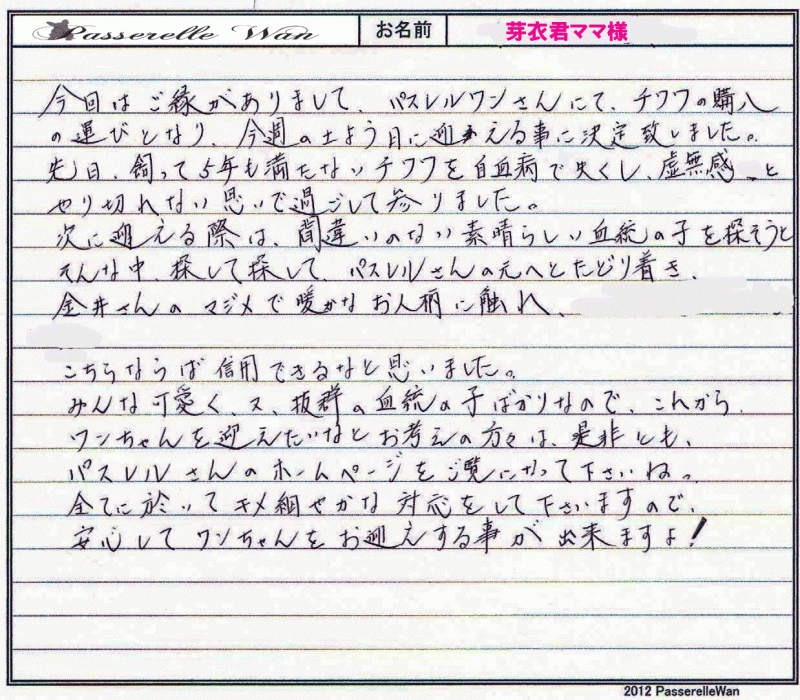 Passerelle Wan
お名前
芽衣君ママ様
今回はご縁がありまして、パスレルワンさんにて、チワワの購入
の運びとなり、今週の土よう日に迎える事に決定致しました。
先日、飼って5年も満たないチワワを白血病で失くし、虚無感、と
やり切れない思いで過ごして参りました。
次に迎える際は、間違いのない素晴らしい血統の子を探そうと
そんな中、探して探して、パスレルさんの元へとたどり着き、
金井さんのマジメで暖かなお人柄に触れ、
こちらならば信用できるなと思いました。
みんな可愛く、又、抜群の血統の子ばかりなので、これから、
ワンちゃんを迎えたいなとお考えの方々は、是非とも、
パスレルさんのホームページをご覧になって下さいね。
全てに於いてキメ細やかな対応をして下さいますので、
安心してワンちゃんをお迎えする事が出来ますよ!
2012 PasserelleWan